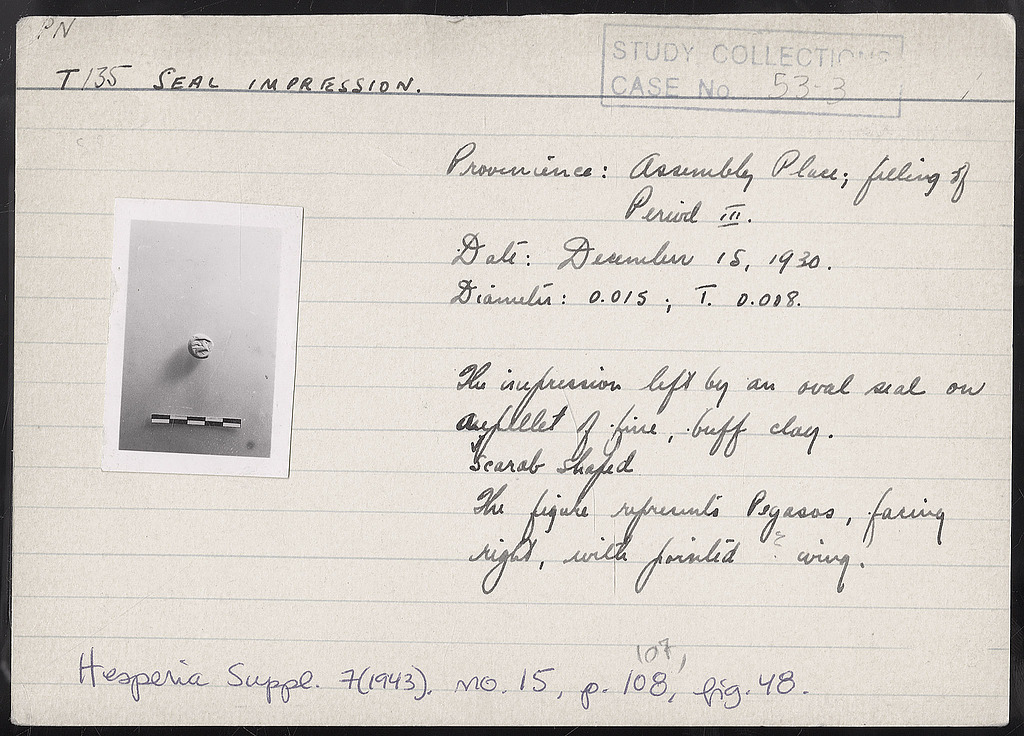 PN
T135 SEAL IMPRESSION.
STUDY COLLECTIONS
CASE No. 53-3
Provenience: Assembly Place; filling of
Period III.
Date: December 15, 1930.
Diameter: 0.015; T. 0.008.
The impression left by an oval seal on
a pellet of fine, buff clay.
scarab shaped
The figure represents Pegasos, facing
right, with pointed wing.
107,
Hesperia Suppl. 7(1943), no. 15, p. 108, fig. 48.